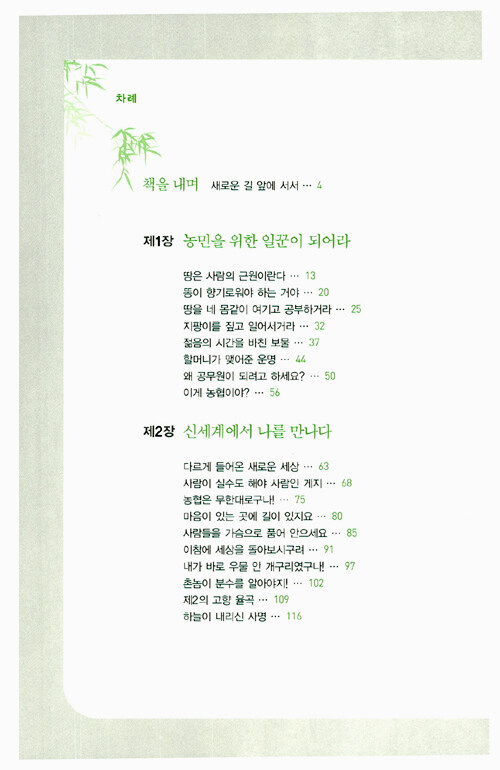 차례
책을 내며 새로운 길 앞에 서서 … 4
제1장 농민을 위한 일꾼이 되어라
땅은 사람의 근원이란다 … 13
똥이 향기로워야 하는 거야 … 20
땅을 네 몸같이 여기고 공부하거라 … 25
지팡이를 짚고 일어서거라 … 32
젊음의 시간을 바친 보물 … 37
할머니가 맺어준 운명 … 44
왜 공무원이 되려고 하세요? … 50
이게 농협이야? … 56
제2장 신세계에서 나를 만나다
다르게 들어온 새로운 세상 … 63
사람이 실수도 해야 사람인 게지 … 68
농협은 무한대로구나! … 75
마음이 있는 곳에 길이 있지요 … 80
사람들을 가슴으로 품어 안으세요 … 85
이참에 세상을 돌아보시구려 … 91
내가 바로 우물 안 개구리였구나! … 97
촌놈이 분수를 알아야지! … 102
제2의 고향 율곡 … 109
하늘이 내리신 사명 … 116